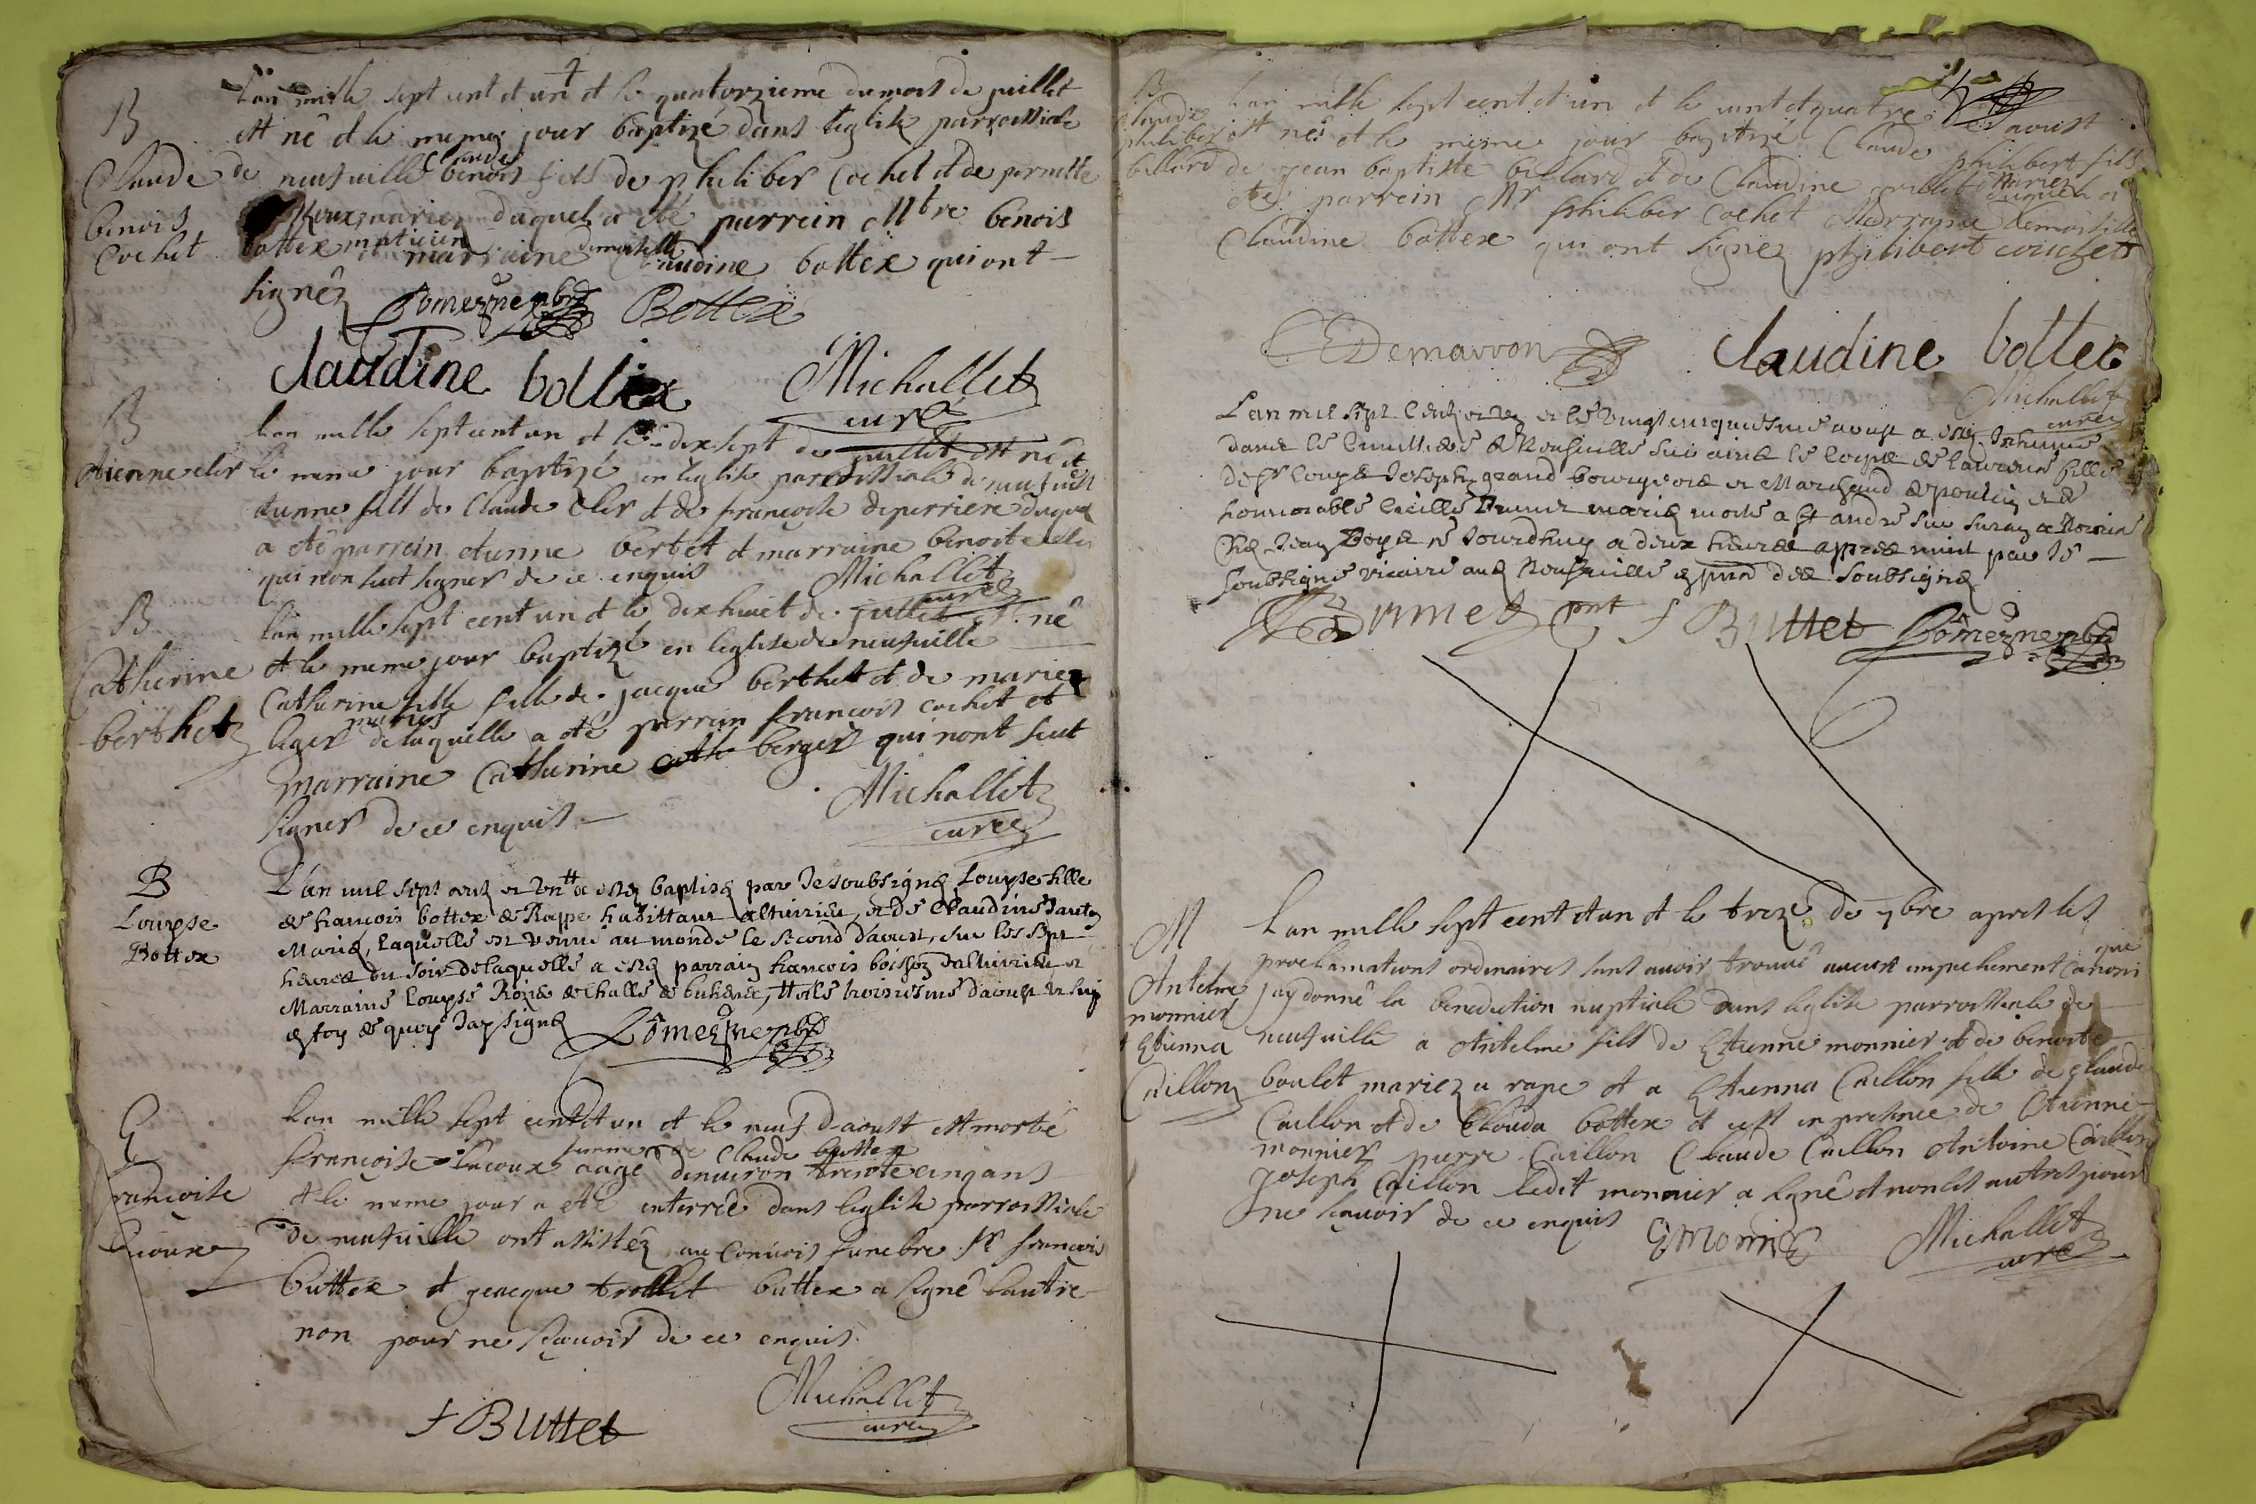 B
Claude
benois
Cochet
Lan mille sept cent et un et le quatorzieme du mois de juillet
est né et le meme jour baptizé dans leglise parrossiale
de neufuille Claude benois fils de philiber Cochet et de pernette
Roux mariez duquel a eté parrein Mtre benois
bottex praticien marraine demoiselle Claudine bottex qui ont
signéz Bottex
Claudine bottex Michallet
curé
B
etienne cler
Lan mille sept cent un et le dix sept de juillet est né et
le meme jour baptizé en leglise parrossiale de neufuille
etienne fils de Claude Cler et de francoise deperriere duquel
a eté parrein etienne berthet et marraine benoite cler
qui nont sceut signer de ce enquis Michallet
curé
B
Catherine
berthet
Lan mille sept cent un et le dix huict de juillet est né
et le meme jour baptizé en leglise de neufuille
Catherine fille de jacque berthet et de marie
leger mariés de laquelle a eté parrein francois cochet et
marraine Catherine berger qui nont sceut
signer de ce enquis Michallet
curé
B
Louyse
Bottex
L'an mil sept centz et un a estez baptizé par Je soubsigné Louyse fille
de francois bottex de Rappe habittant, et de Claudine
Mariez, laquelle est venue au monde le second d'aoust, sur les sept
heures du soir de laquelle a estez parrain francois et
Marraine Louyse de Challes de, le troisiesme d'aoust
en foy de quoy J'ay signé
E
francoise
Lacoux
Lan mille sept cent et un et le neuf daoust est morte
francoise Lacoux femme de Claude buttex aagé denuiron trente cinq ans
et le meme jour a eté enterrée dans leglise parrossiale
de neufuille ont assistéz au conuois funebre Sr francois
buttex et jeacque trollet buttex a signé lautre
non pour ne scauoir de ce enquis
F Buttet Michallet
curé
B
Claude
philiber
billard
Lan mille sept cent et un et le vint et quatre aoust
est né et le meme jour baptizé Claude philibert fils
de jean baptiste billard et de Claudine mariez duquel a
eté parrein Mr philiber Cochet Marraine demoiselle
Claudine bottex qui ont signez philibert couchet
Demarron Claudine bottex
Michallet
curé
L'an mil sept centz et un et le vingt cinquiesme aoust a estez Inhumé
dans le cimettiere de Neufuille le corps de fille
de Sr Joseph grand bourgeois et Marchand de poncin et de
honnorable mariez morte a St andré sur suran
Jourdhuy a deux heures apres midi par Je
soubsigné vicaire audit Neufuille en presence des soubsignez
F Buttet
M
Antelme
monnier
Etienna
Caillon
Lan mille sept cent et un et le treze de 7bre apres les
proclamations ordinaires sans auoir trouué aucun empechement canonique
jay donné la benediction nuptiale dans leglise parrossiale de
neufuille a Antelme fils de Etienne monnier et de benoite
boulet mariez a rape et a Etienna Caillon fille de Claude
Caillon et de Clauda bottex et cest en presence de Etienne
monnier pierre Caillon Claude Caillon Antoine Caillon
Joseph Caillon ledit monnier a signé et non les autres pour
ne scauoir de ce enquis E monnie Michallet
curé